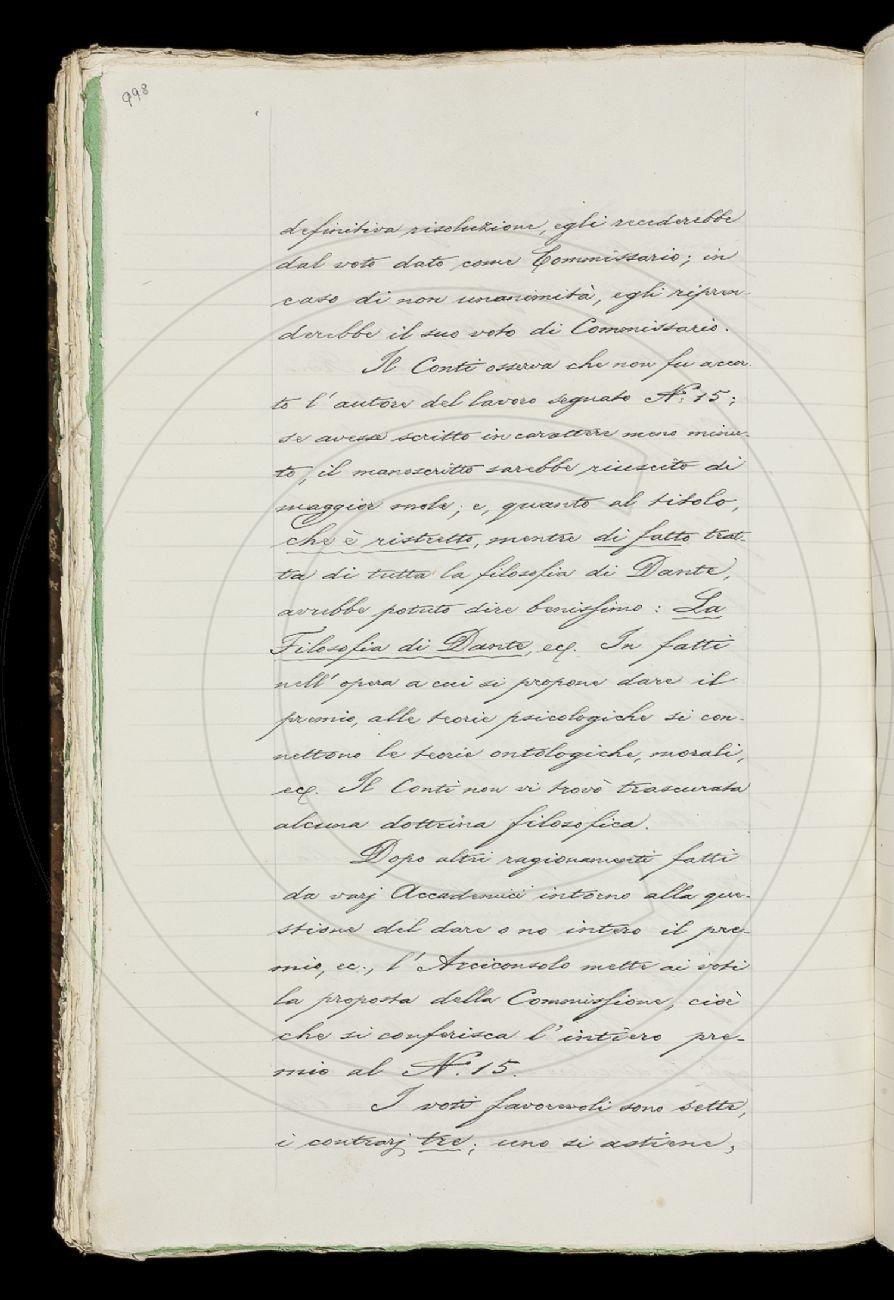 998
definitiva risoluzione, egli recederebbe
dal voto dato come Commissario; in
caso di non unanimità, egli ripren-
derebbe il suo voto di Commissario.
Il Conti osserva che non fu accor-
to l'autore del lavoro segnato N.° 15;
se avesse scritto in carattere meno minu-
to, il manoscritto sarebbe riuscito di
maggior mole; e, quanto al titolo,
che è ristretto, mentre di fatto trat-
ta di tutta la filosofia di Dante,
avrebbe potuto dire benissimo: La
Filosofia di Dante, ecc. In fatti
nell'opera a cui si propone dare il
premio, alle teorie psicologiche si con-
nettono le teorie ontologiche, morali,
ecc. Il Conti non vi trovò trascurata
alcuna dottrina filosofica.
Dopo altri ragionamenti fatti
da varj Accademici intorno alla que-
stione del dare o no intero il pre-
mio, ec., l'Arciconsolo mette ai voti
la proposta della Commissione, cioè
che si conferisca l'intiero pre-
mio al N.° 15.
I voti favorevoli sono sette,
i contrarj tre; uno si astiene,